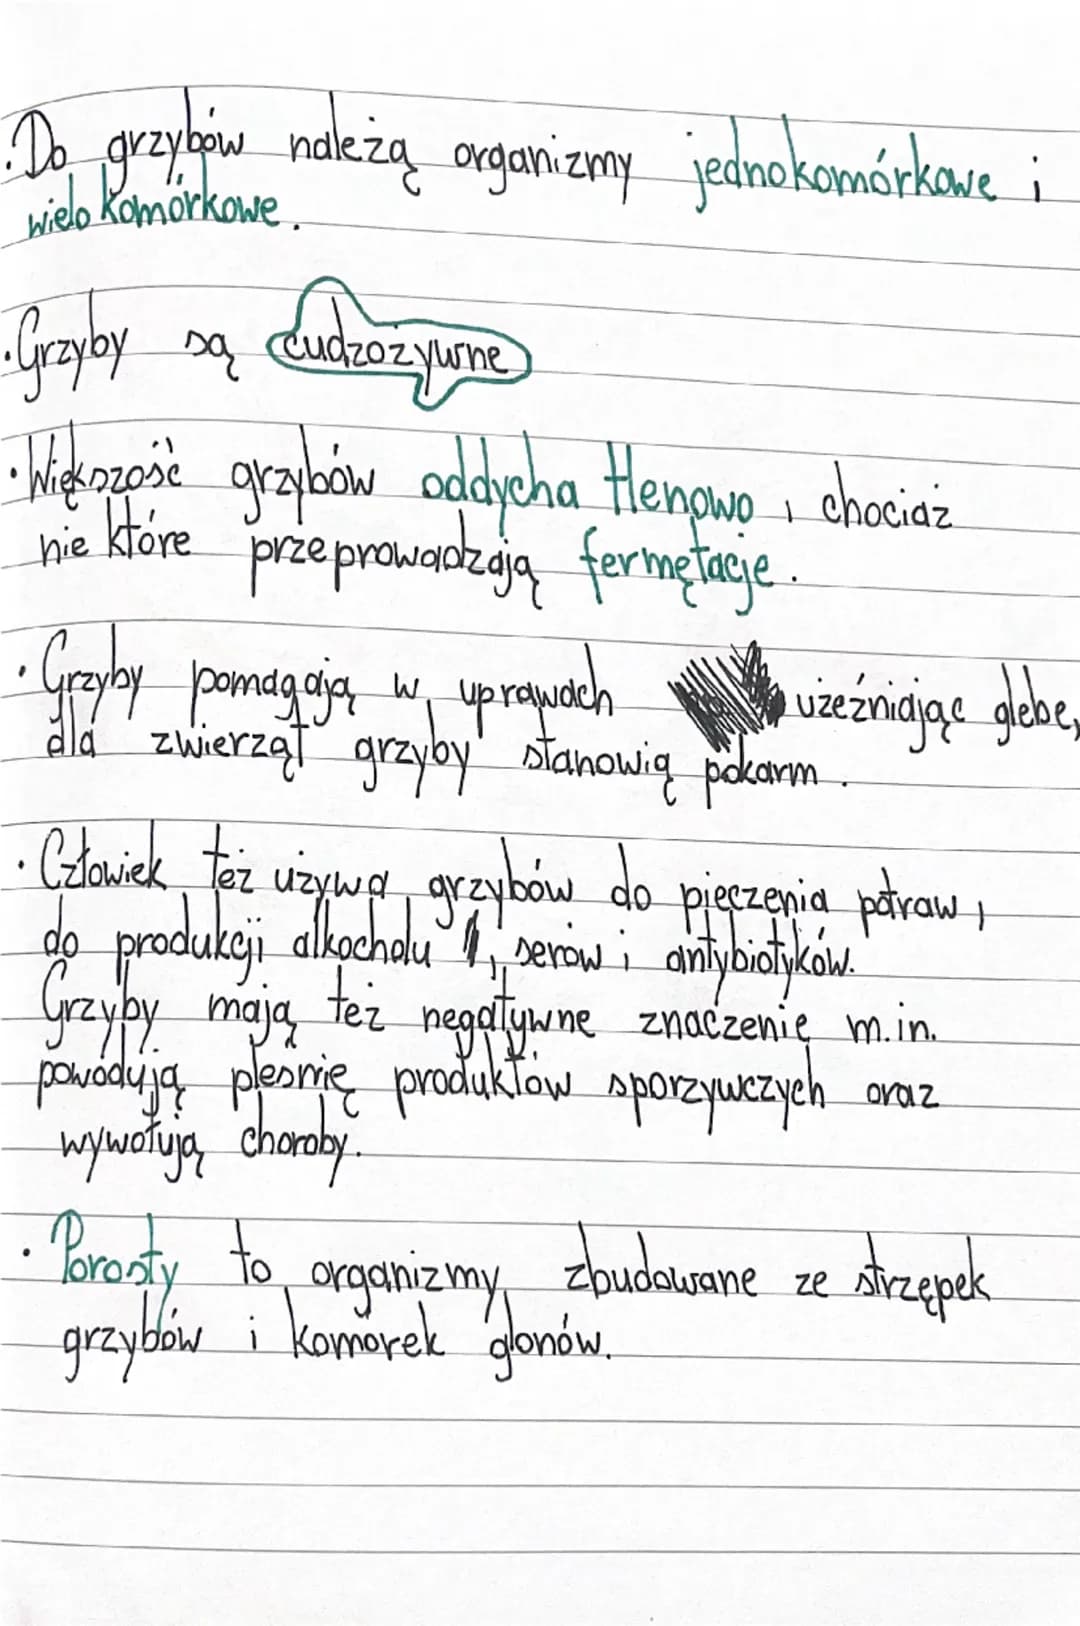 • Do grzybów należą organizmy jednokomórkowe i
wielo komórkowe.
• Grzyby są cudzożywne
• Większość grzybów oddycha tlenowo, chociaż
nie które przeprowadzają fermętacje.
• Grzyby pomagają w uprawach użeźniając glebe,
dla zwierząt grzyby stanowią pokarm.
• Człowiek też używa grzybów do pieczenia potraw,
do produkcji alkocholu, serów i antybiotyków.
Grzyby mają też negatywne znaczenie m.in.
powodują pleśnię produktów sporzywczych oraz
wywołują choroby.
• Porosty to organizmy zbudowane ze strzępek
grzybów i komórek glonów.